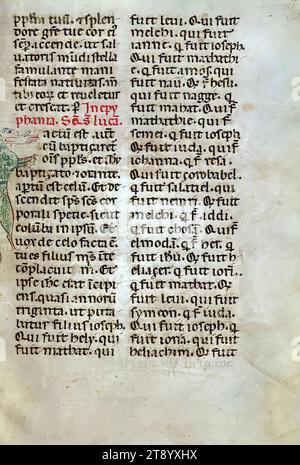 pp̄lm tuū. ⁊ splen
dore gr̄e tue cor ei'
accende. ut sal
uatoris mūdi stella
famulante mani
festata natiuitas m̄
tib' eorū reueletur
et crescat. ꝑ In epy
phania. Scd̄m lucā.
actum est aut̄
cū baptizaret'
om̄s ppl's. et ih̄u
baptizato ⁊ orante.
est celum. Et de
scendit sp̄s sc̄s cor
porali specie sicut
colūba in ipsum. Et
uox de celo facta ē.
tu es filius m̄s. in te
complacuit m̄. Et
ipse ih̄c erat incipi
ens quasi annorū
triginta. ut puta
batur filius ioseph.
Qui fuit hely. qui
fuit mathat. qui
fuit leui. Qui fuit
melchi. qui fuit
ianne. q̄ fuit ioseph.
Qui fuit mathathie.
q̄ fuit amos. qui
fuit nau. Q̄ f̄ hesli.
qui fuit nagge. q̄
fuit mahat. Qui
fuit mathathie. qui f̄
semei. q̄ fuit ioseph
Q̄ f̄ iuda. qui f̄
iohanna. q̄ f̄ resa.
Qui fuit zorobabel.
q̄ fuit salatiel. qui
fuit neri. Qui fuit
melchi. q̄ f̄ addi.
q̄ fuit chosā. Qui f̄
elmodā. q̄ f̄ her. q̄
fuit ih̄u. Q̄ fuit he
liezer. q̄ fuit iorī.
q̄ fuit mathat. Q̄
fuit leui. Qui fuit
symeon. q̄ f̄ iuda.
Qui fuit ioseph. q̄
fuit iona. Qui fuit
heliachim. Q̄ fuit